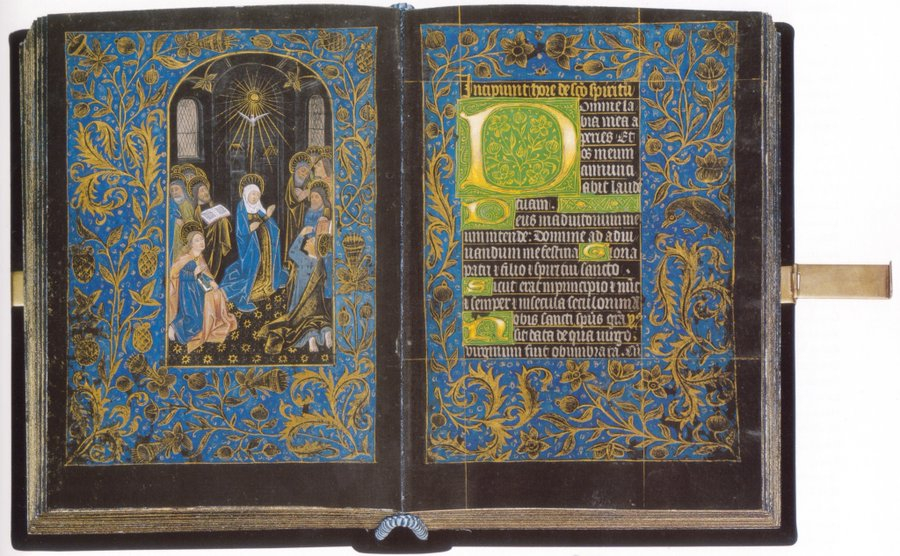 Incipiunt hore de sco spiritu
Domine la
bia mea a
peries Et
os meum
annunti
abit laude
tuam.
Deus in adiutorium me
um intende: Domine ad adiu
uandum me festina Gloria
patri & filio & spiritui sancto.
Sicut erat in principio & nuc
& semper & in secula seculorum a
Nobis sancti spus gra
sit data de qua uirgo
uirginum fuit obumbrata. Cu